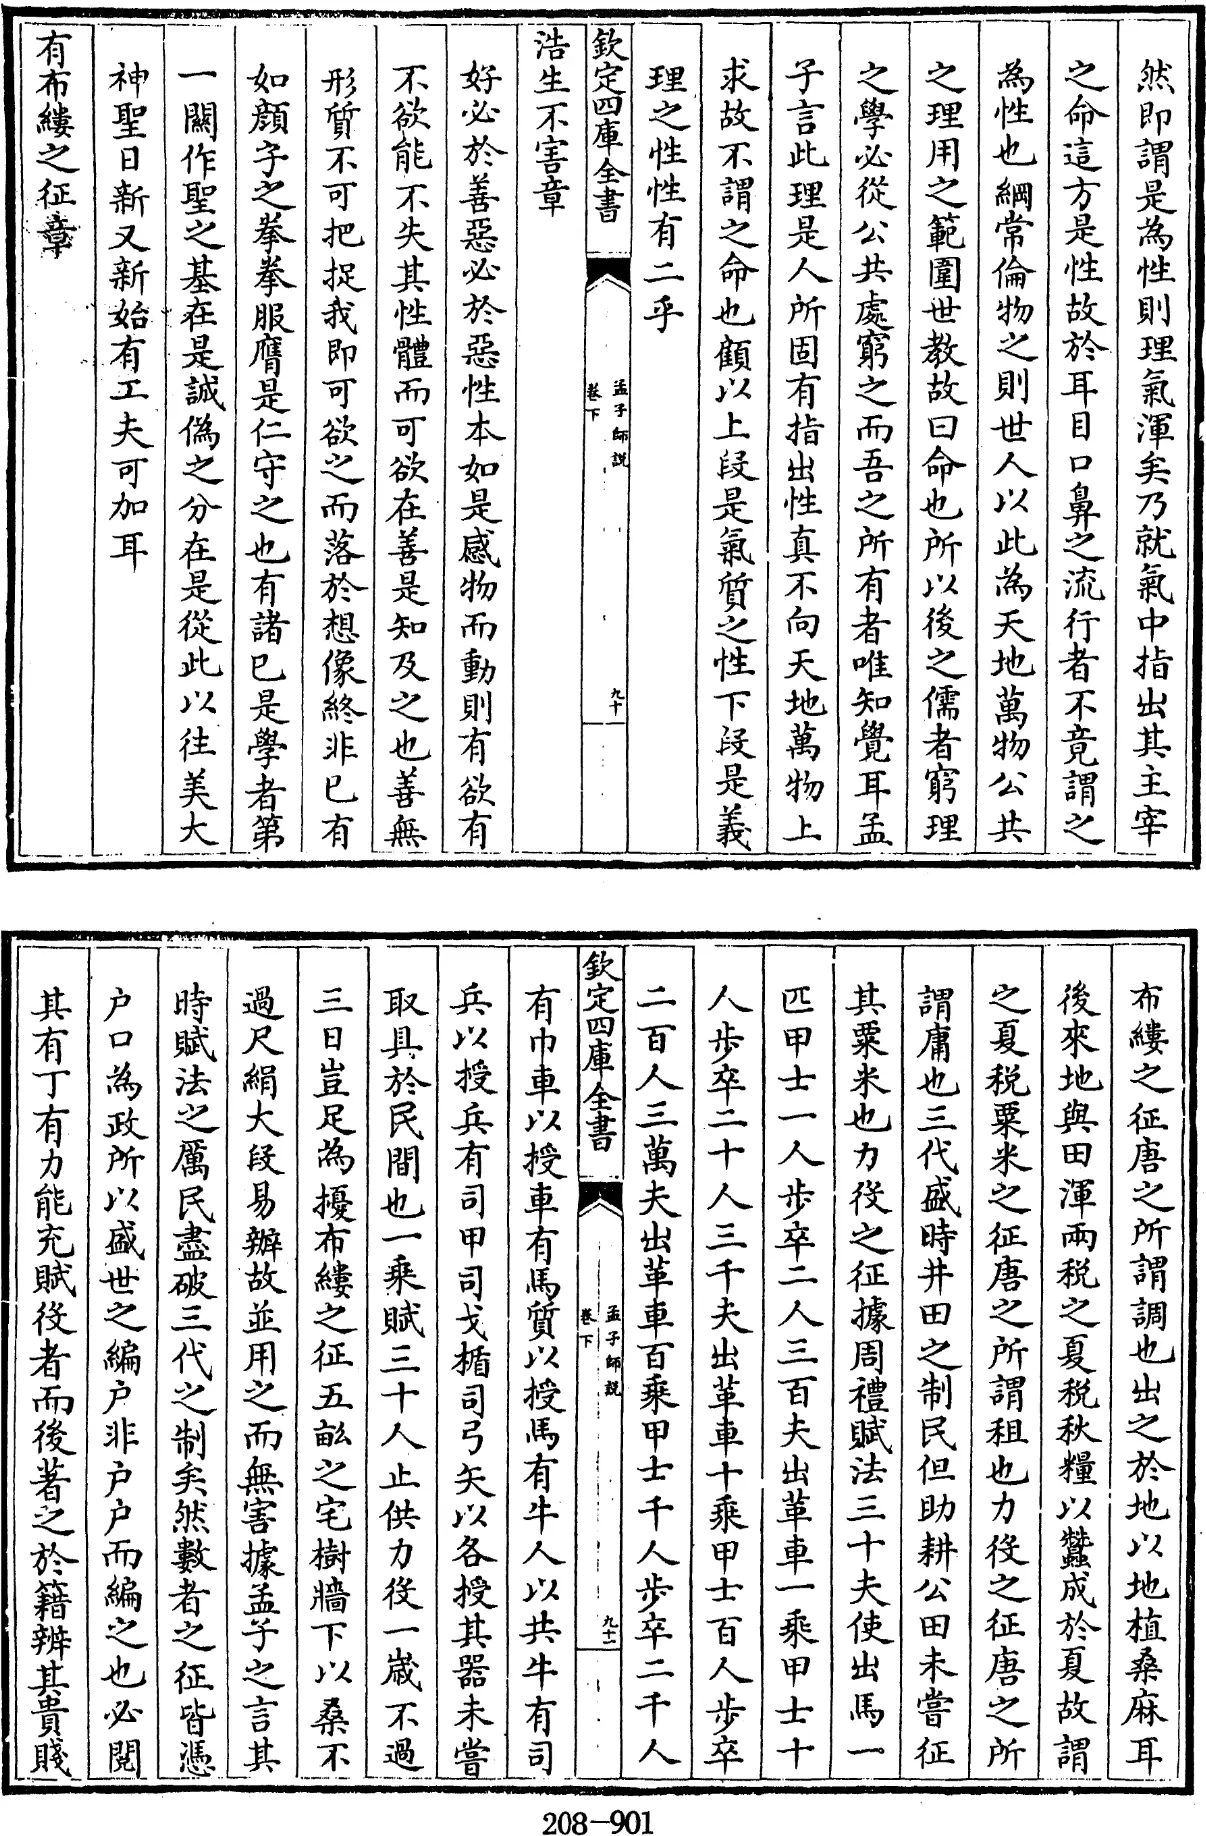 然即謂是為性則理氣渾矣乃就氣中指出其主宰
之命這方是性故於耳目口鼻之流行者不竟謂之
為性也綱常倫物之則世人以此為天地萬物公共
之理用之範圍世教故曰命也所以後之儒者窮理
之學必從公共處窮之而吾之所有者唯知覺耳孟
子言此理是人所固有指出性真不向天地萬物上
求故不謂之命也顧以上段是氣質之性下段是義
理之性性有二乎
欽定四庫全書
孟子師説
卷下
九十
浩生不害章
好必於善惡必於惡性本如是感物而動則有欲有
不欲能不失其性體而可欲在善是知及之也善無
形質不可把捉我即可欲之而落於想像終非已有
如顔子之拳拳服膺是仁守之也有諸已是學者第
一關作聖之基在是誠偽之分在是從此以往美大
神聖日新又新始有工夫可加耳
有布縷之征章
布縷之征唐之所謂調也出之於地以地植桑麻耳
後來地與田渾兩税之夏税秋糧以蠶成於夏故謂
之夏税粟米之征唐之所謂租也力役之征唐之所
謂庸也三代盛時井田之制民但助耕公田未嘗征
其粟米也力役之征據周禮賦法三十夫使出馬一
匹甲士一人步卒二人三百夫出革車一乘甲士十
人步卒二十人三千夫出革車十乘甲士百人步卒
二百人三萬夫出革車百乘甲士千人步卒二千人
欽定四庫全書
孟子師説
卷下
九十一
有巾車以授車有馬質以授馬有牛人以共牛有司
兵以授兵有司甲司戈楯司弓矢以各授其器未嘗
取具於民間也一乘賦三十人止供力役一嵗不過
三日豈足為擾布縷之征五畝之宅樹牆下以桑不
過尺絹大段易辦故並用之而無害據孟子之言其
時賦法之厲民盡破三代之制矣然數者之征皆憑
户口為政所以盛世之編户非户户而編之也必閲
其有丁有力能充賦役者而後著之於籍辨其貴賤
208-901